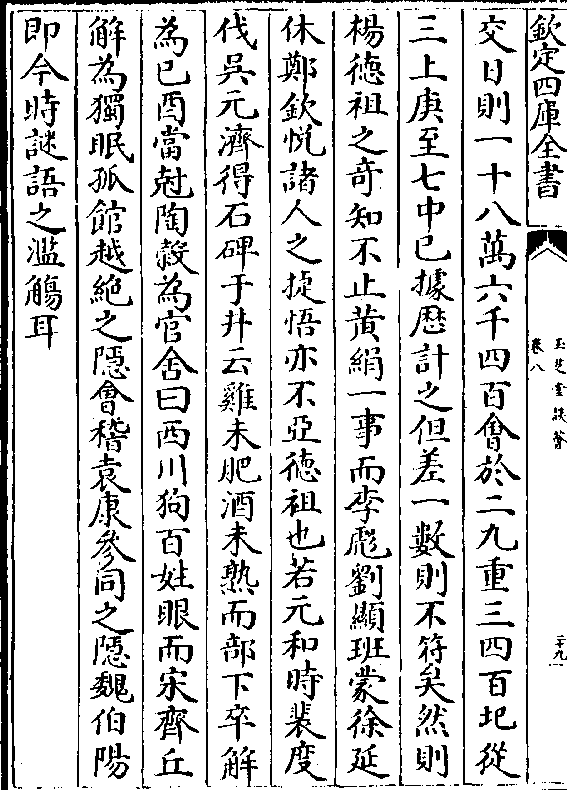 欽定四庫全書
玉芝堂談薈
卷八
二十九
交日則一十八萬六千四百會於二九重三四百圯從
三上庚至七中巳據厯計之但差一數則不符矣然則
楊德祖之竒知不止黄絹一事而李彪劉顯班蒙徐延
休鄭欽悦諸人之捷悟亦不亞德祖也若元和時裴度
伐吳元濟得石碑于井云雞未肥酒未熟而部下卒解
為已酉當尅陶穀為官舍曰西川狗百姓眼而宋齊丘
解為獨眠孤館越絶之隠會稽袁康參同之隠魏伯陽
即今時謎語之濫觴耳